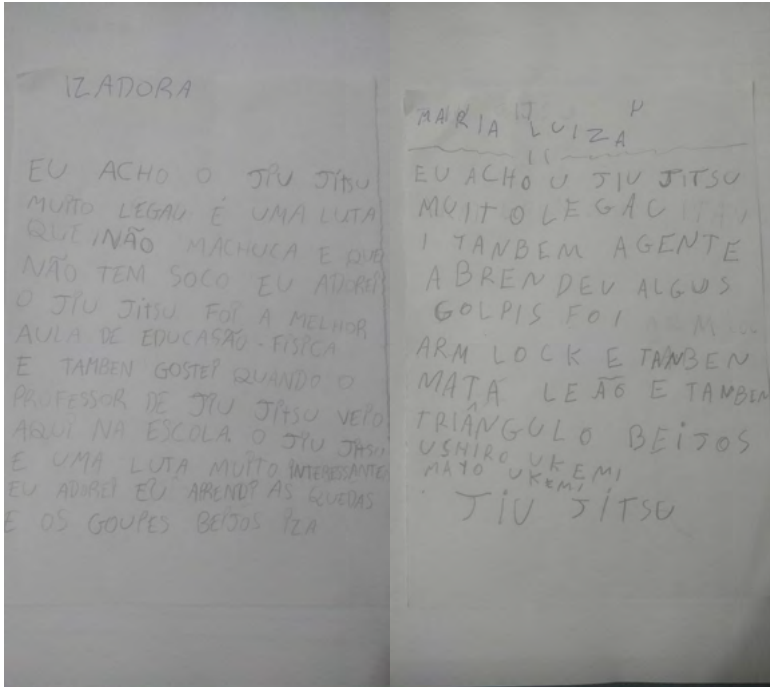 IZADORA
EU ACHO O JIU JITSU
MUITO LEGAU É UMA LUTA
QUE NÃO MACHUCA E QUE
NÃO TEM SOCO EU ADOREI
O JIU JITSU FOI A MELHOR
AULA DE EDUCASÃO-FISICA
E TAMBEN GOSTEI QUANDO O
PROFESSOR DE JIU JITSU VEIO
AQUI NA ESCOLA O JIU JITSU
E UMA LUTA MUITO INTERESSANTE
EU ADOREI EU APRENDI AS QUEDAS
E OS GOUPES BEIJOS IZA
MARIA LUIZA
EU ACHO U JIU JITSU
MUITO LEGAU
I TANBEM AGENTE
ABRENDEU ALGUS
GOLPIS FOI
ARM LOCK E TANBEN
MATA LEÃO E TANBEN
TRIÂNGULO BEIJOS
USHIRO UKEMI
MAYO UKEMI
JIU JITSU